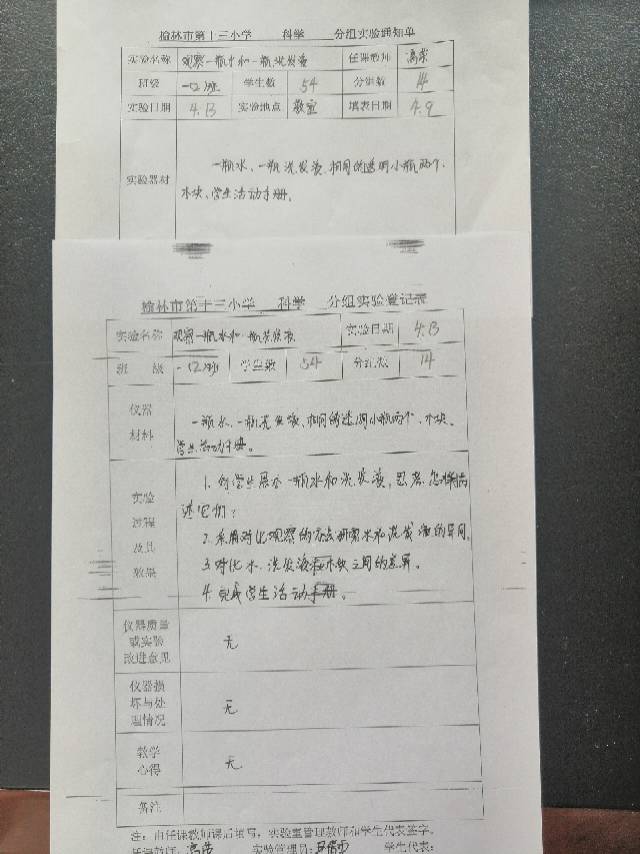 榆林市第十三小学 科学 分组实验通知单
实验名称 观察一瓶水和一瓶洗发液 任课教师
班级 一(2)班 学生数 54 分组数 14
实验日期 4.13 实验地点 教室 填表日期 4.9
一瓶水、一瓶洗发液、相同的透明小瓶两个、
实验器材
木块、学生活动手册。
榆林市第十三小学 科学 分组实验登记表
实验名称 观察一瓶水和一瓶洗发液 实验日期 4.13
班 级 一(2)班 学生数 54 分组数 14
仪器 一瓶水、一瓶洗发液、相同的透明小瓶两个、木块、
材料 学生活动手册。
1. 向学生展示一瓶水和洗发液,思考:怎样描
实验 述它们?
过程 2. 采用对比观察的方法研究水和洗发液的异同。
及其 3. 对比水、洗发液和木块之间的差异。
效果 4. 完成学生活动手册。
仪器质量
或实验 无
改进意见
仪器损
坏与处 无
理情况
教学
心得 无
备注
注:由任课教师课后填写,实验室管理教师和学生代表签字。
任课教师: 实验管理员: 学生代表: